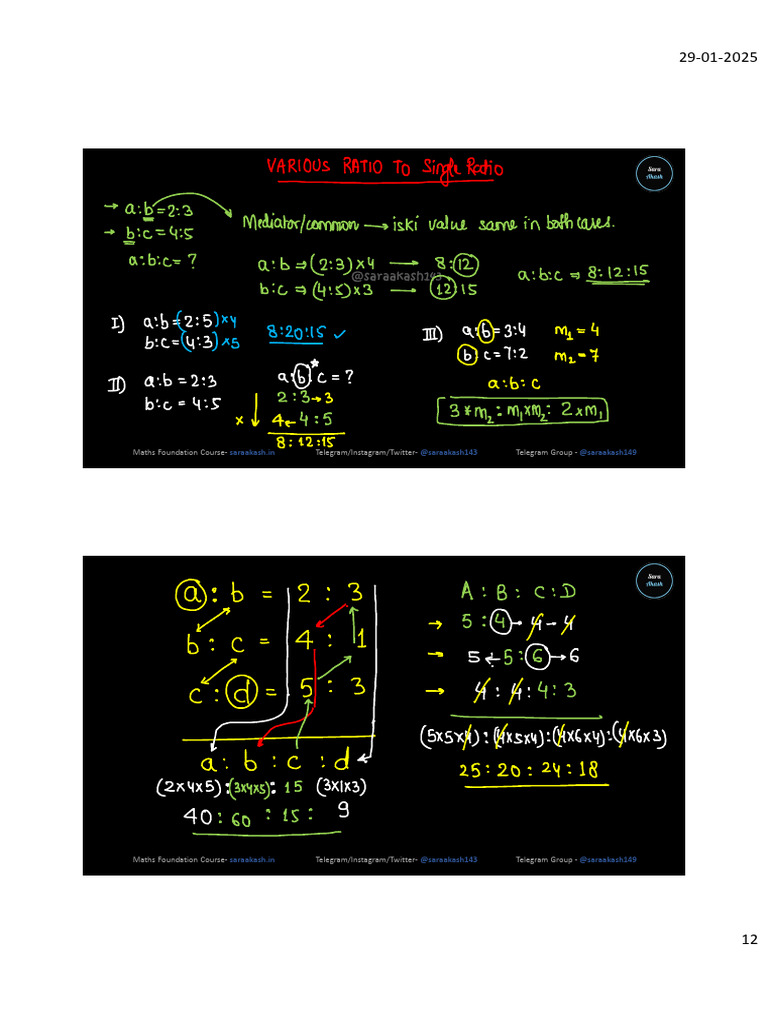 29-01-2025
VARIOUS RATIO TO Single Ratio
Sara
Akash
→ a:b = 2:3
→ b:c = 4:5
a:b:c = ?
Mediator/common → iski value same in both cases.
a:b ⇒ (2:3)×4 → 8:12
@saraakash143
b:c ⇒ (4:5)×3 → 12:15
a:b:c ⇒ 8:12:15
I) a:b = (2:5)×4
b:c = (4:3)×5
8:20:15 ✓
II) a:b = 2:3
b:c = 4:5
a:b:c = ?
*
2:3→3
× ↓ 4←4:5
8:12:15
III) a:b = 3:4 m₁ = 4
b:c = 7:2 m₂ = 7
a:b:c
3*m₂ : m₁×m₂ : 2×m₁
Maths Foundation Course- saraakash.in Telegram/Instagram/Twitter- @saraakash143 Telegram Group - @saraakash149
Sara
Akash
a : b = 2 : 3
b : c = 4 : 1
c : d = 5 : 3
a : b : c : d
(2×4×5) : (3×4×5) : 15 (3×1×3)
40 : 60 : 15 : 9
A : B : C : D
→ 5 : 4 → 4 - 4
→ 5 ← 5 : 6 → 6
→ 4 : 4 : 4 : 3
(5×5×4) : (4×5×4) : (4×6×4) : (4×6×3)
25 : 20 : 24 : 18
Maths Foundation Course- saraakash.in Telegram/Instagram/Twitter- @saraakash143 Telegram Group - @saraakash149
12